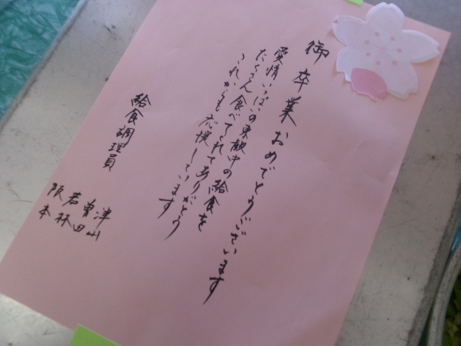 御卒業おめでとうございます
愛情いっぱいの東観中の給食を
たくさん食べてくれてありがとう
これからも応援しています
給食調理員
津山
曽田
若林
阪本